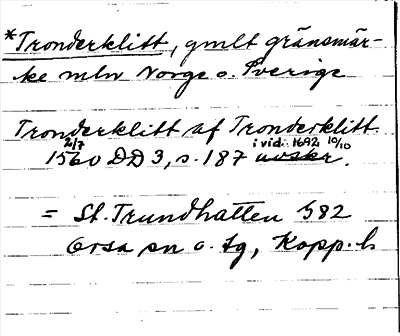 *Tronderklitt, gmlt gränsmär-
ke mln Norge o. Sverige
Tronderklitt af Tronderklitt
2/7 i vid. 1692 10/10
1560 DD 3, s. 187 avskr.
= St. Trundhatten S82
Orsa sn o. tg, Kopp. l.